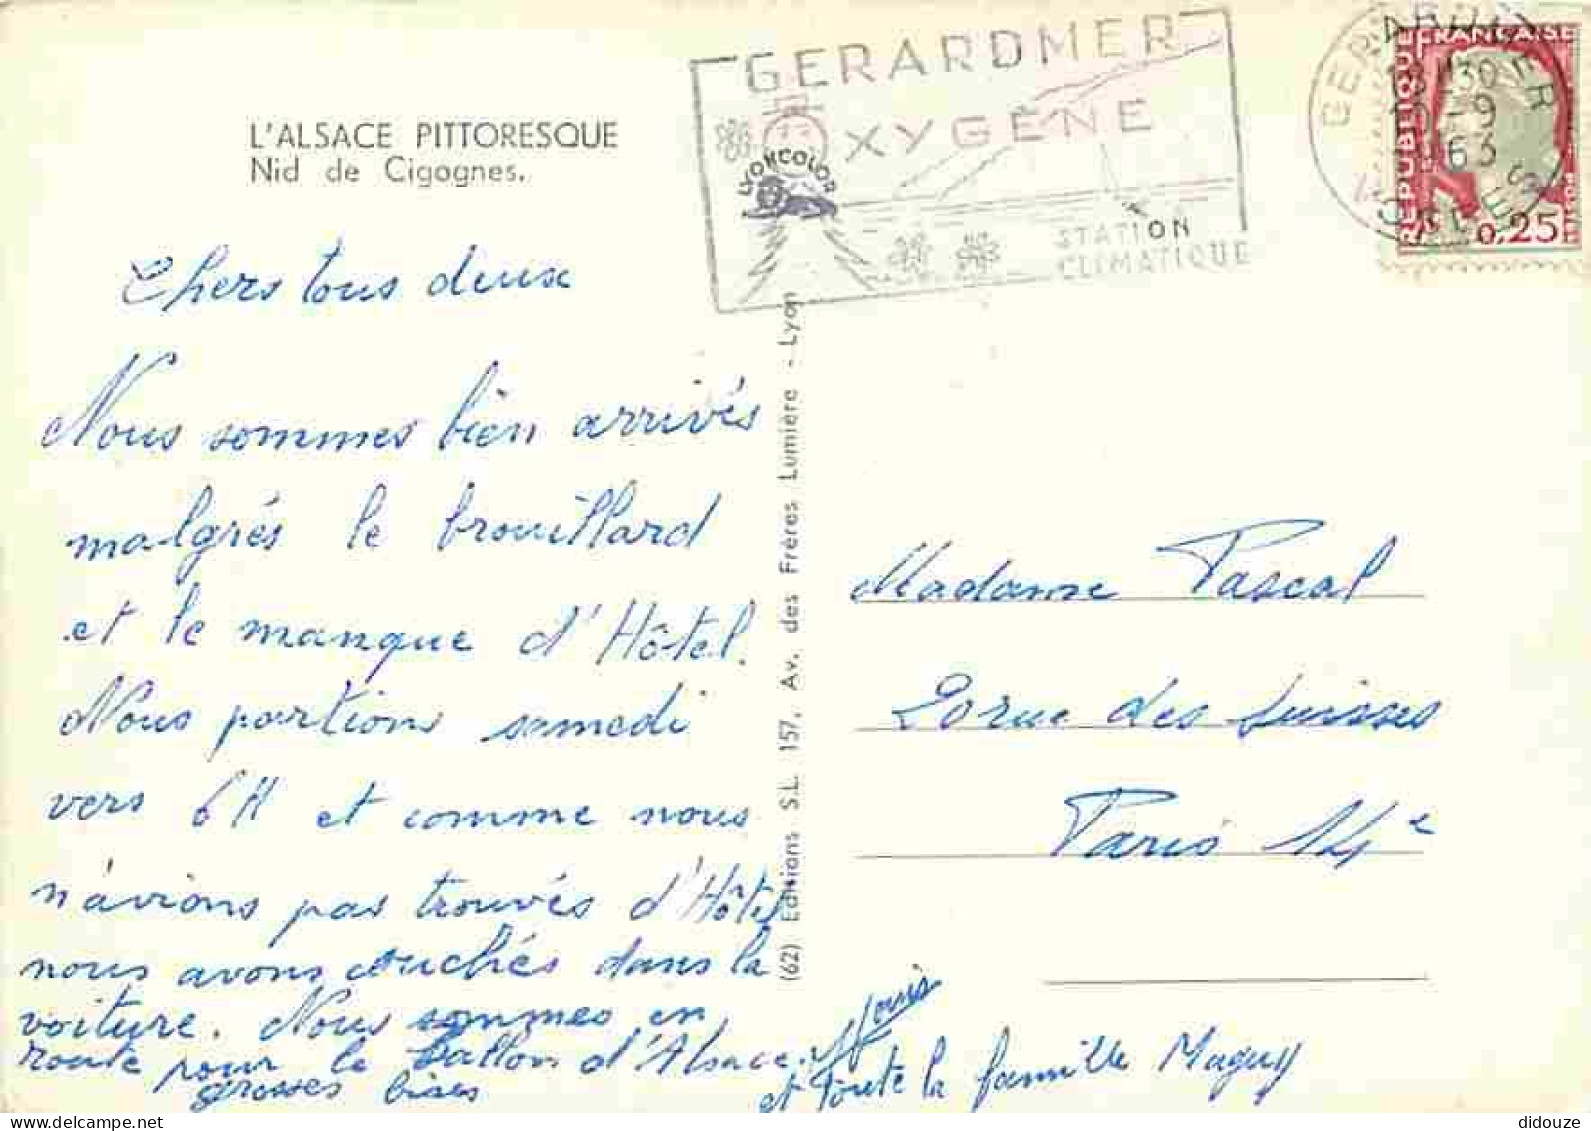 L'ALSACE PITTORESQUE
Nid de Cigognes.
Chers tous deux
Nous sommes bien arrivés
malgrés le brouillard
et le manque d'Hôtel.
Nous partions samedi
vers 6H et comme nous
n'avions pas trouvés d'Hôtel
nous avons couchés dans la
voiture. Nous sommes en
route pour le Ballon d'Alsace.
grosses bises
et toute la famille Maguy
(62) Editions S.L. 157, Av. des Frères Lumière - Lyon
GERARDMER
OXYGÈNE
LYONCOLOR
STATION
CLIMATIQUE
GERARDMER
30
-9
63
VOSGES
REPUBLIQUE FRANÇAISE
0,25
Madame Pascal
20 rue des Suisses
Paris 14e
delcampe.net
didouze